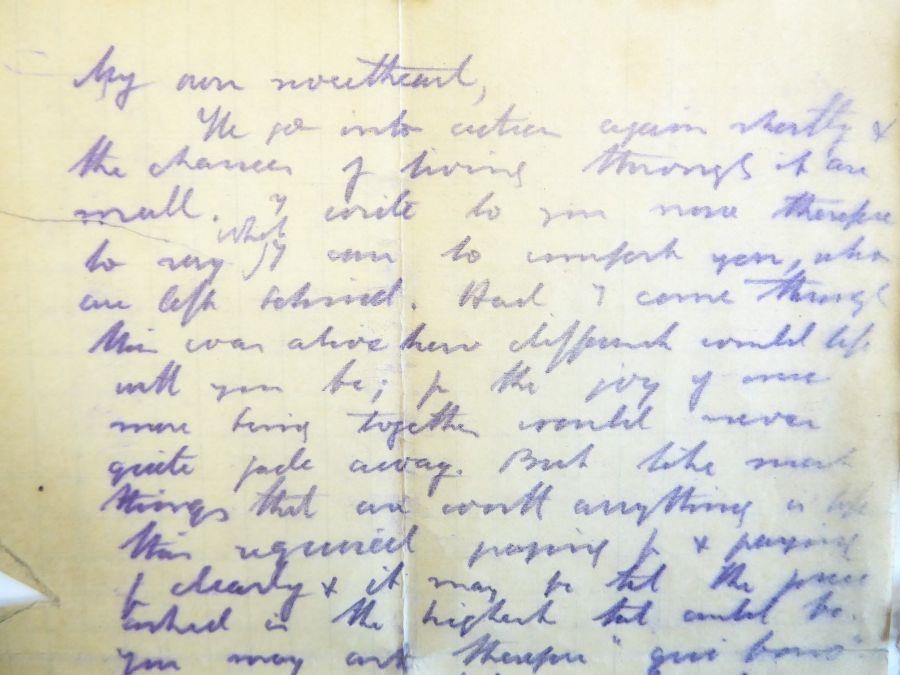 My own sweetheart,
We go into action again shortly &
the chances of living through it are
small. I write to you now therefore
to say what I can to comfort you, who
are left behind. Had I come through
this war alive how different would life
with you be; for the joy of once
more being together would never
quite fade away. But like most
things that are worth anything in life
this required paying for & paying
for dearly & it may be that the price
asked is the highest that could be.
You may ask therefore "qui bono"